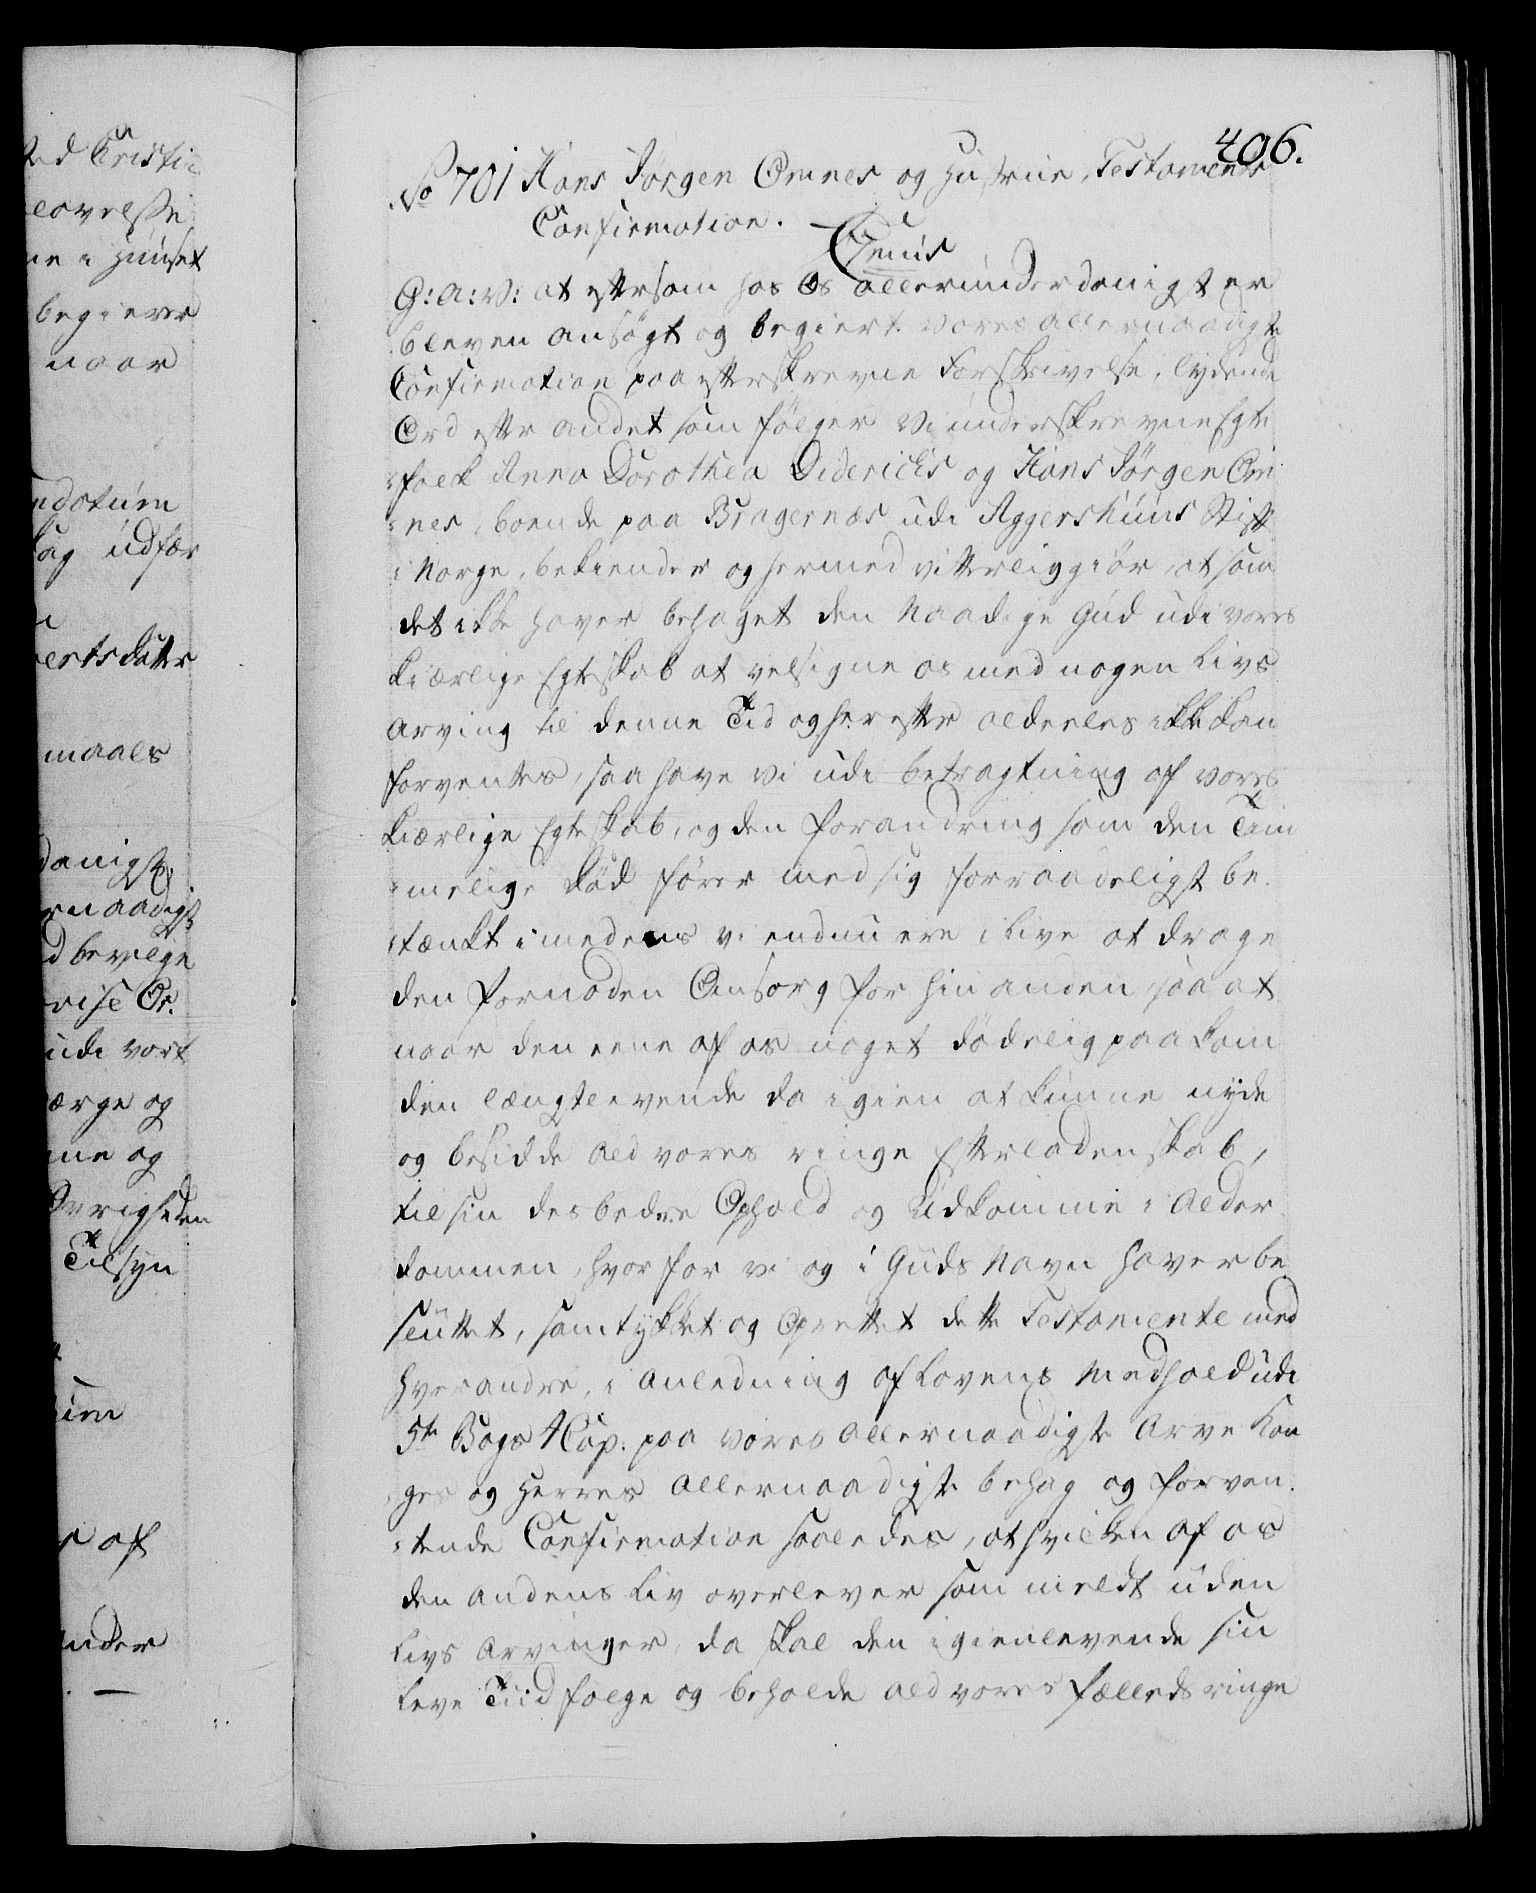 406.
No 701 Hans Jörgen Omnes og Hustrue, Testaments
Confirmation.
Genus
G: A: V: at eftersom hos Os allerunderdanigst er
bleven ansögt og begiert vores allernaadigste
Confirmation paa efterskrevne Forskrivelse, lydende
Ord efter andet som fölger Vi underskrevne Egte
:folck Anna Dorothea Didericks og Hans Jörgen Om
:nes, boende paa Bragernæs udi Aggershuus Stift
i Norge, bekiender og hermed vitterliggiör, at som
det ikke haver behaget den Naadige Gud udi vores
kiærlige Egteskab at velsigne os med nogen Livs
Arving til denne Tid og herefter aldeeles ikke kan
forventes, saa have vi udi betragtning af vores
kiærlige Egteskab, og den forandring som den Tim
:melige död förer med sig forraadeligst be
:tænkt imedens vi endnu ere i Live at drage
den fornöden Omsorg for hinanden, saa at
naar den eene af os noget dödelig paakom
den længstlevende da igien at kunne nyde
og besidde ald vores ringe Efterladenskab,
til sin desbedre Ophold og Udkomme i Alder
dommen, hvorfor vi og i Guds Navn haver be
sluttet, samtykket og Oprettet dette Testamente med
hverandre, i Anledning af Lovens Medhold udi
5te Bogs 4 Cap. paa vores Allernaadigste Arve Kon
ges og Herres Allernaadigste behag og forven
:tende Confirmation saaledes, at hvilken af os
den andens Liv overlever som meldt uden
Livs Arvinger, da skal den igienlevende sin
Leve Tiid fölge og beholde ald vores fælleds ringe